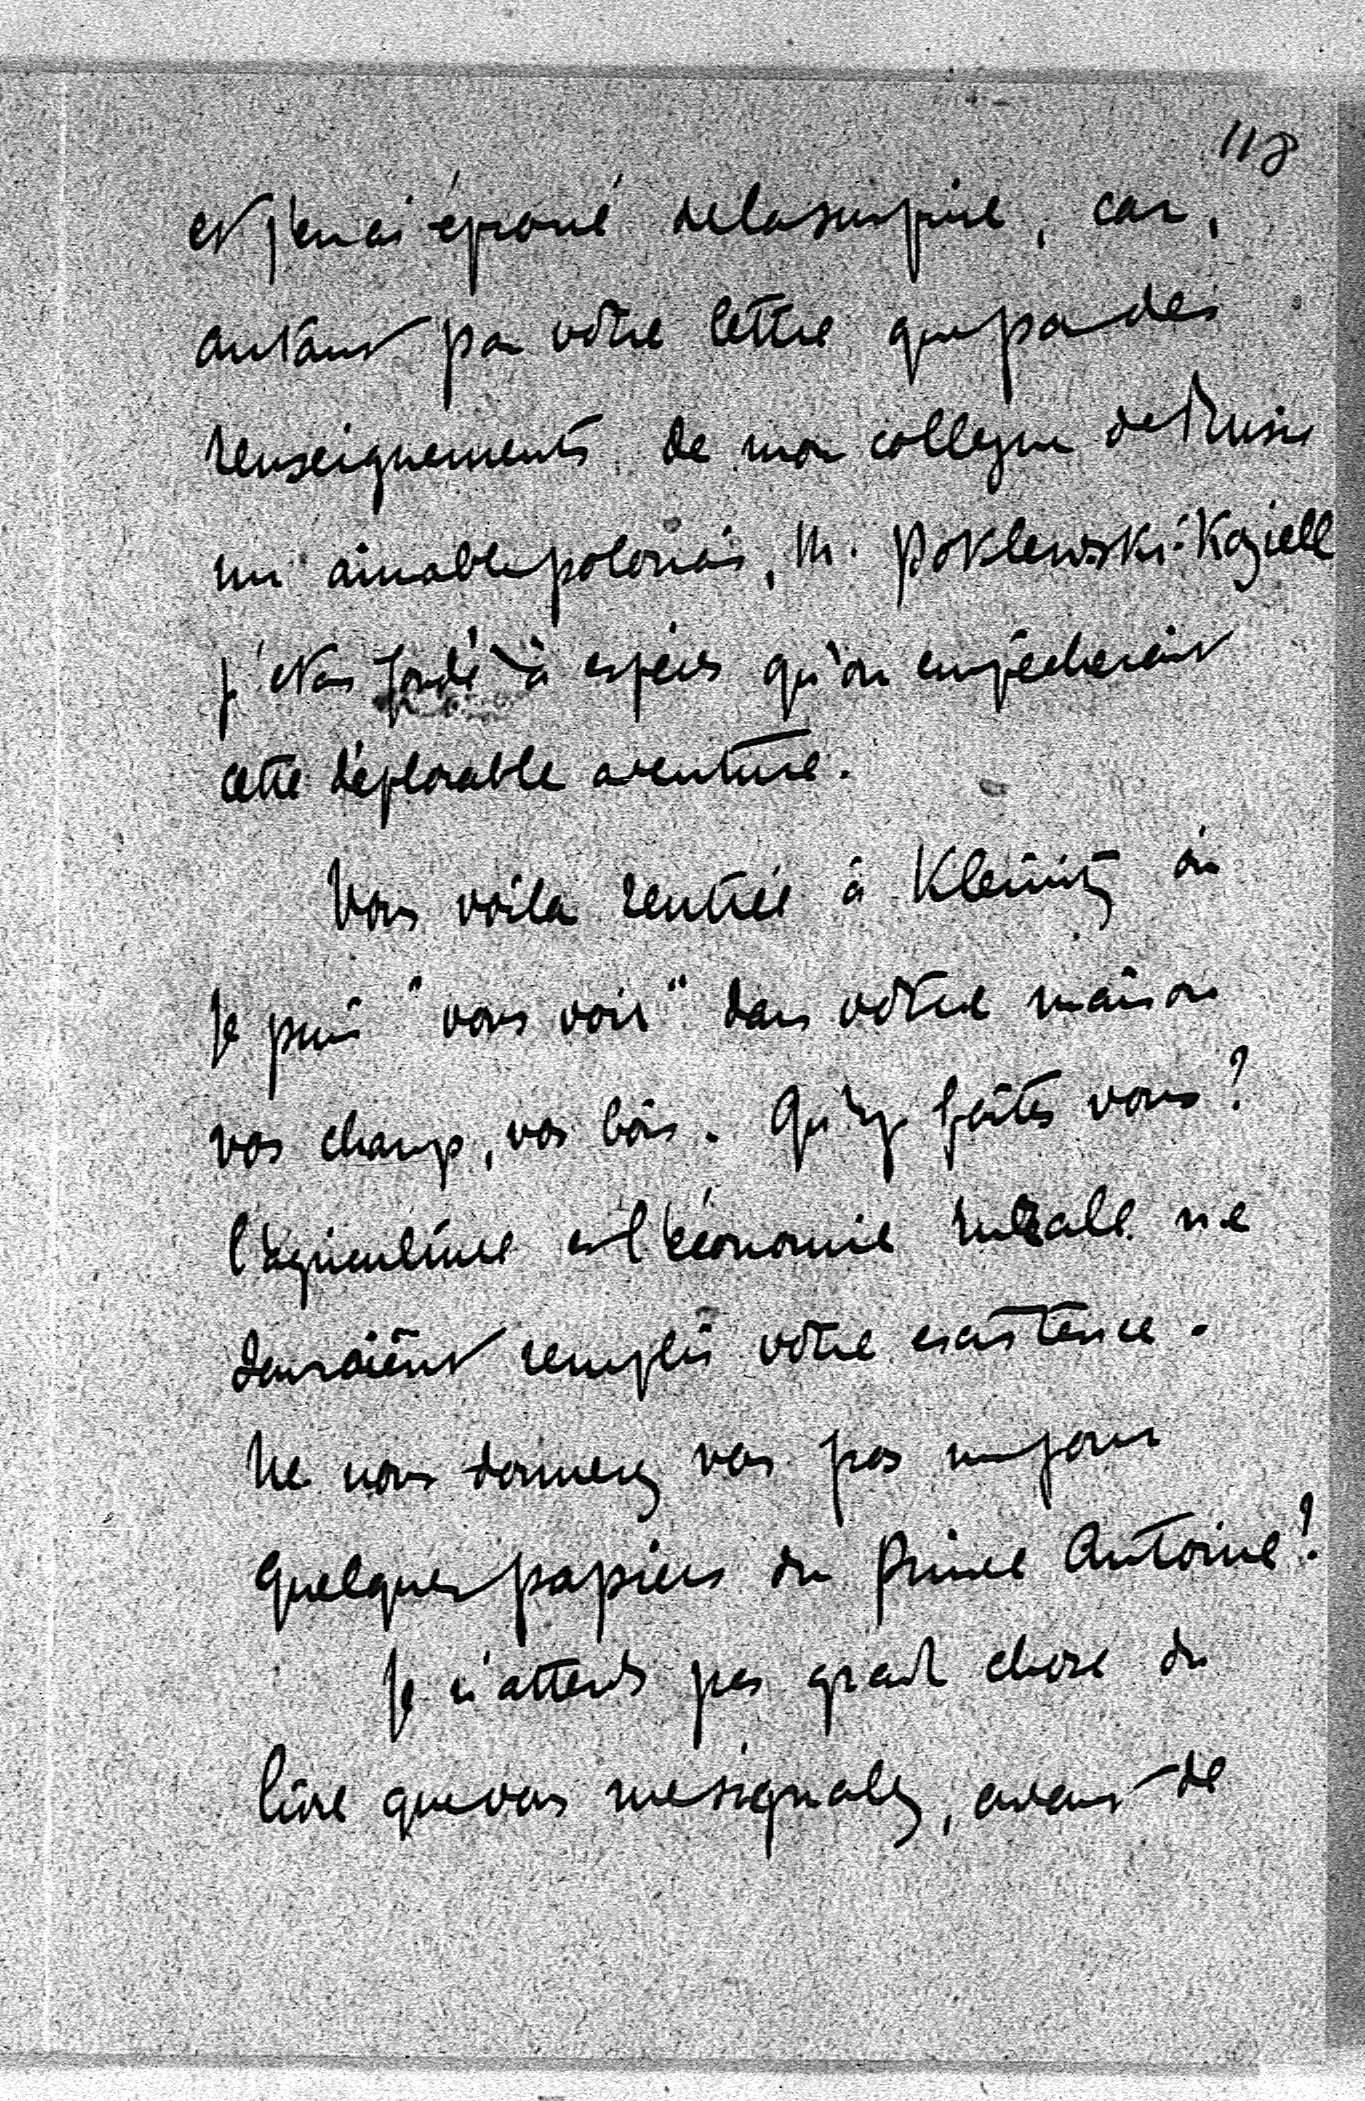 118
et j'en ai éprouvé de la surprise, car,
autant par votre lettre que par des
renseignements de mon collègue de Russie
un aimable polonais, M. Poklewski-Koziell
j'étais fondé à espérer qu'on empêcherait
cette déplorable aventure.
Vous voilà rentrée à Kleinitz où
je puis "vous voir" dans votre maison
vos champs, vos bois. Qu'y faites vous?
l'agriculture et l'économie rurale ne
devraient remplir votre existence.
Ne nous donnerez vous pas un jour
quelques papiers du Prince Antoine?
Je n'attends pas grand chose du
livre que vous me signalez, avant de